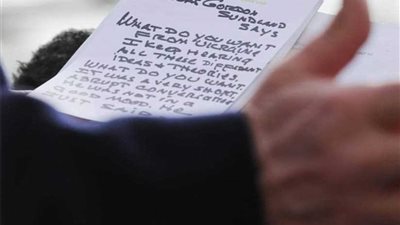 GORDON
SUNDLAND
SAYS
WHAT DO YOU WANT
FROM UKRAINE
I KEEP HEARING
ALL THESE DIFFERENT
IDEAS & THEORIES.
WHAT DO YOU WANT.
IT WAS A VERY SHORT
ABRUPT
HE WAS NOT IN A
GOOD MOOD. HE
JUST SAID